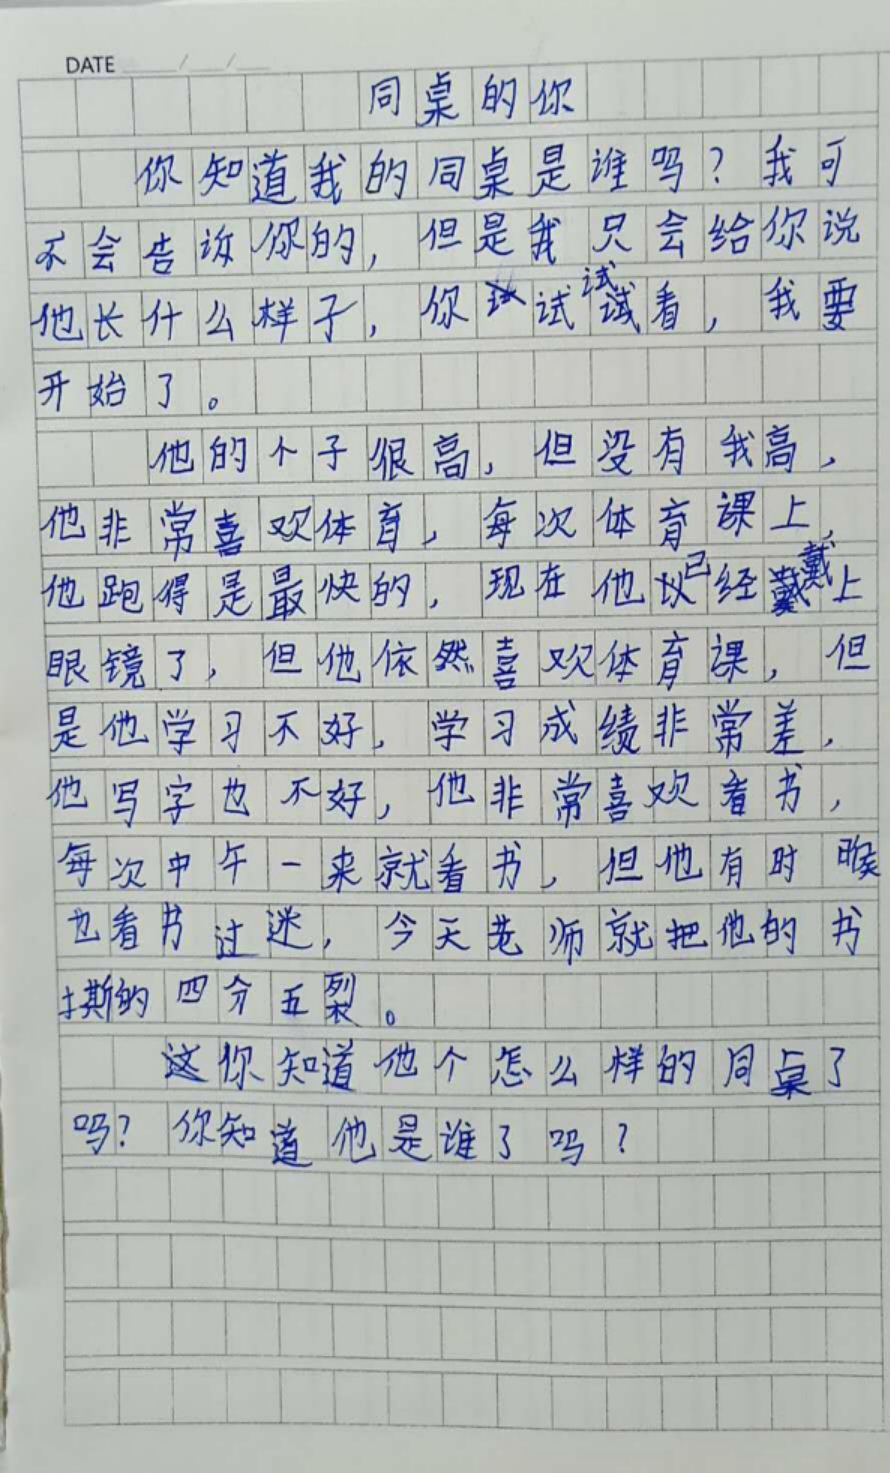 DATE / /
同桌的你
你知道我的同桌是谁吗？我可
不会告诉你的，但是我只会给你说
他长什么样子，你试试看，我要
开始了。
他的个子很高，但没有我高，
他非常喜欢体育，每次体育课上，
他跑得是最快的，现在他已经戴上
眼镜了，但他依然喜欢体育课，但
是他学习不好，学习成绩非常差，
他写字也不好，他非常喜欢看书，
每次中午一来就看书，但他有时候
也看书过迷，今天老师就把他的书
撕的四分五裂。
你知道他个怎么样的同桌了
吗？你知道他是谁了吗？